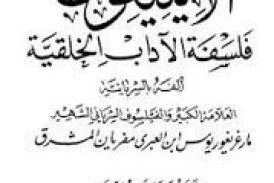 الايثيقون
فلسفة الآداب الخلقية
ألفه بالسريانية
العلامة الكبير والفيلسوف السرياني الشهير
مار غريغوريوس ابن العبري مفريان المشرق